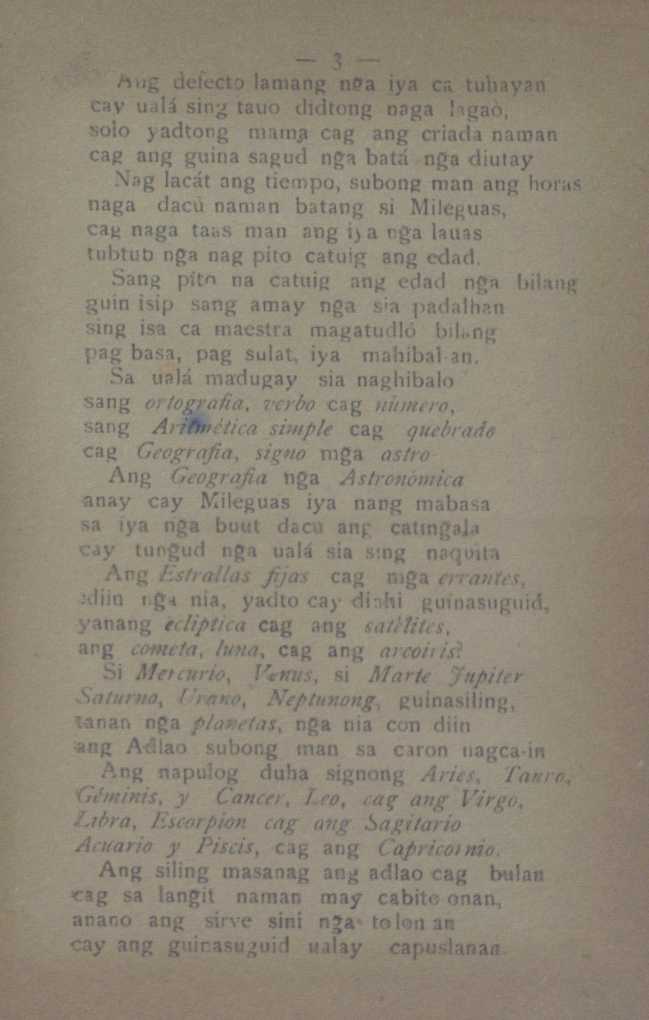 — 3 —
Ang defecto lamang nga iya ca tuhayan
cay ualá sing tauo didtong naga lagaò,
solo yadtong mama cag ang criada naman
cag ang guina sagud ng̃a batá ng̃a diutay
Nag lacát ang tiempo, subong man ang horas
naga dacù naman batang si Mileguas,
cag naga taas man ang iya ng̃a lauas
tubtub ng̃a nag pito catuig ang edad.
Sang pito na catuig ang edad ng̃a bilang
guin isip sang amay ng̃a sia padalhan
sing isa ca maestra magatudló bilang
pag basa, pag sulat, iya mahibal-an.
Sa ualá madugay sia naghibalo
sang ortografia, verbo cag número,
sang Aritmética simple cag quebrado
cag Geografia, signo mg̃a astro
Ang Geografia ng̃a Astronómica
anay cay Mileguas iya nang mabasa
sa iya ng̃a buut dacu ang cating̃ala
cay tung̃ud ng̃a ualá sia sing naquita
Ang Estrallas fijas cag mg̃a errantes,
diin ng̃a nia, yadto cay dinhi guinasuguid,
yanang ecliptica cag ang satélites,
ang cometa, luna, cag ang arcoiris?
Si Mercurio, Venus, si Marte Jupiter
Saturno, Urano, Neptunong, guinasiling,
tanan ng̃a planetas, ng̃a nia con diin
ang Adlao subong man sa caron nagca-in
Ang napulog duha signong Aries, Tauro,
Géminis, y Cancer, Leo, cag ang Virgo,
Libra, Escorpion cag ang Sagitario
Acuario y Piscis, cag ang Capricornio.
Ang siling masanag ang adlao cag bulan
cag sa lang̃it naman may cabito-onan,
anano ang sirve sini ng̃a tolon an
cay ang guinasuguid ualay capuslanan.